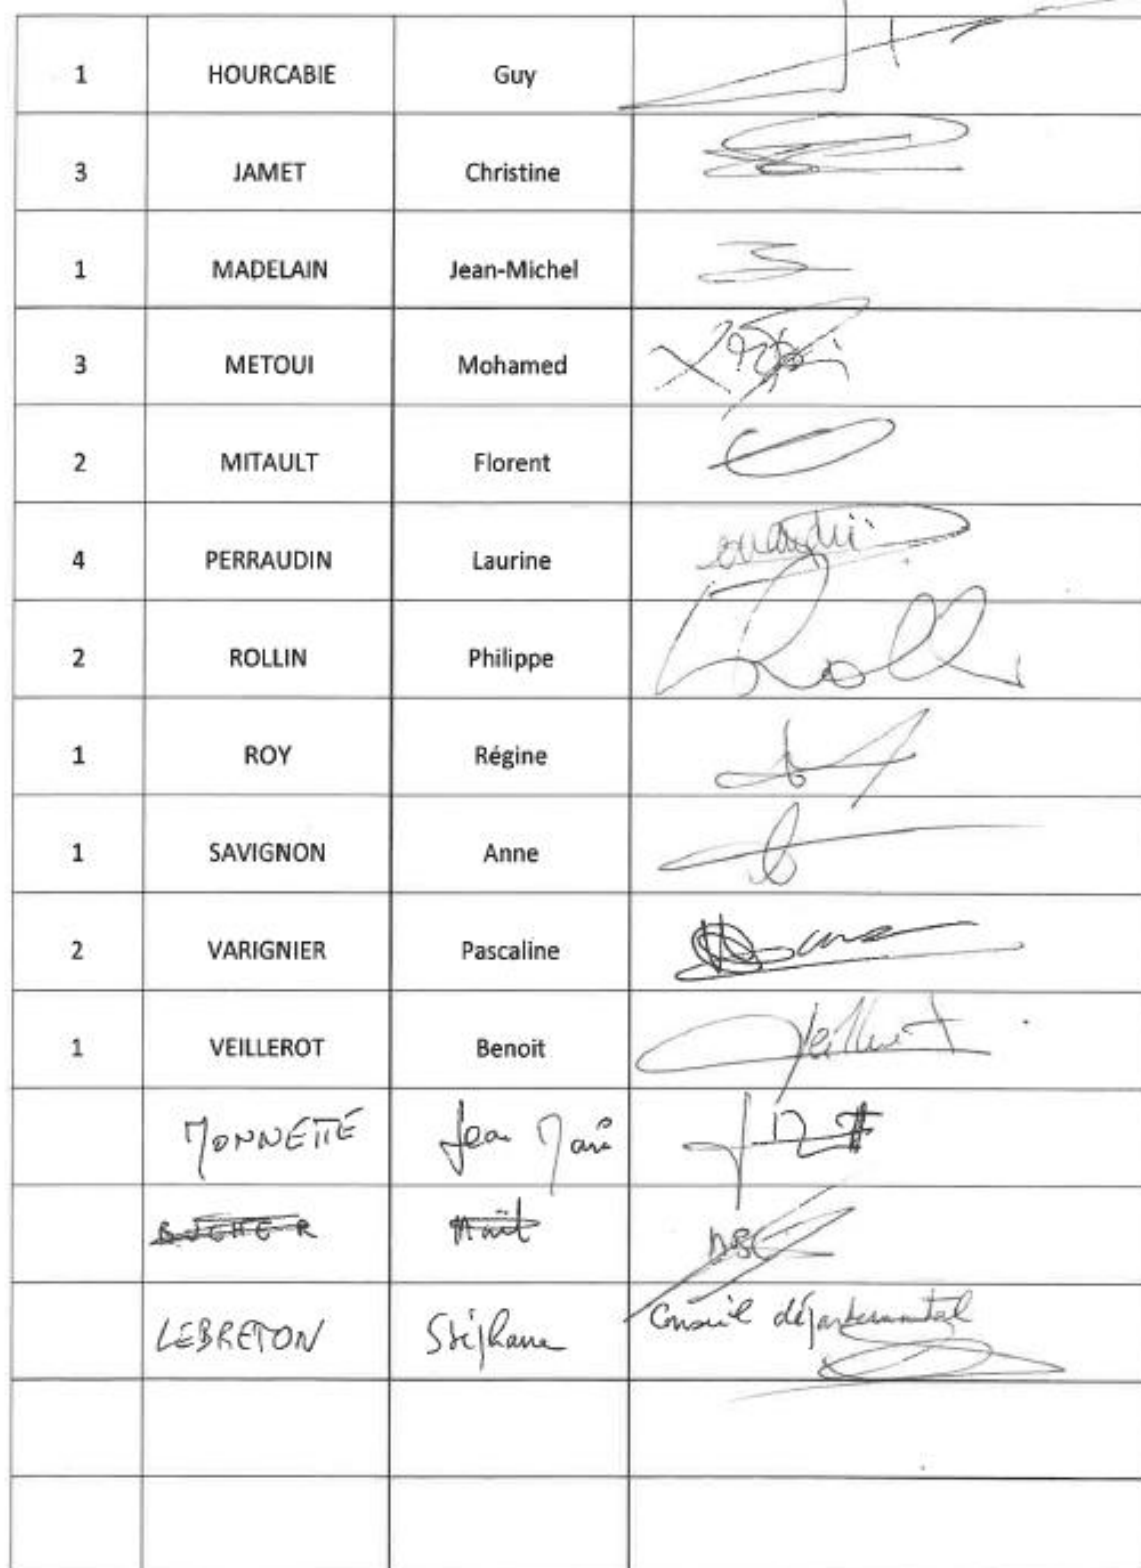 1 HOURCABIE Guy
3 JAMET Christine
1 MADELAIN Jean-Michel
3 METOUI Mohamed
2 MITAULT Florent
4 PERRAUDIN Laurine
2 ROLLIN Philippe Roll
1 ROY Régine
1 SAVIGNON Anne
2 VARIGNIER Pascaline
1 VEILLEROT Benoit Veillerot
MONNETTE Jean Marie
LEBRETON Stéphane Conseil départemental